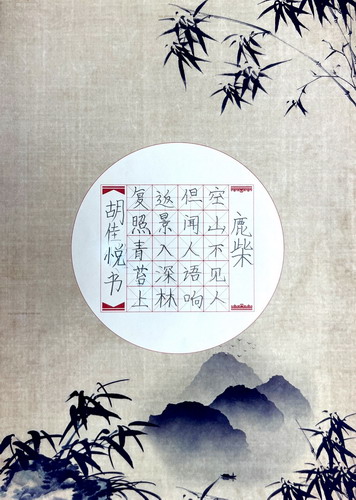 鹿柴
空山不见人
但闻人语响
返景入深林
复照青苔上
胡佳悦书